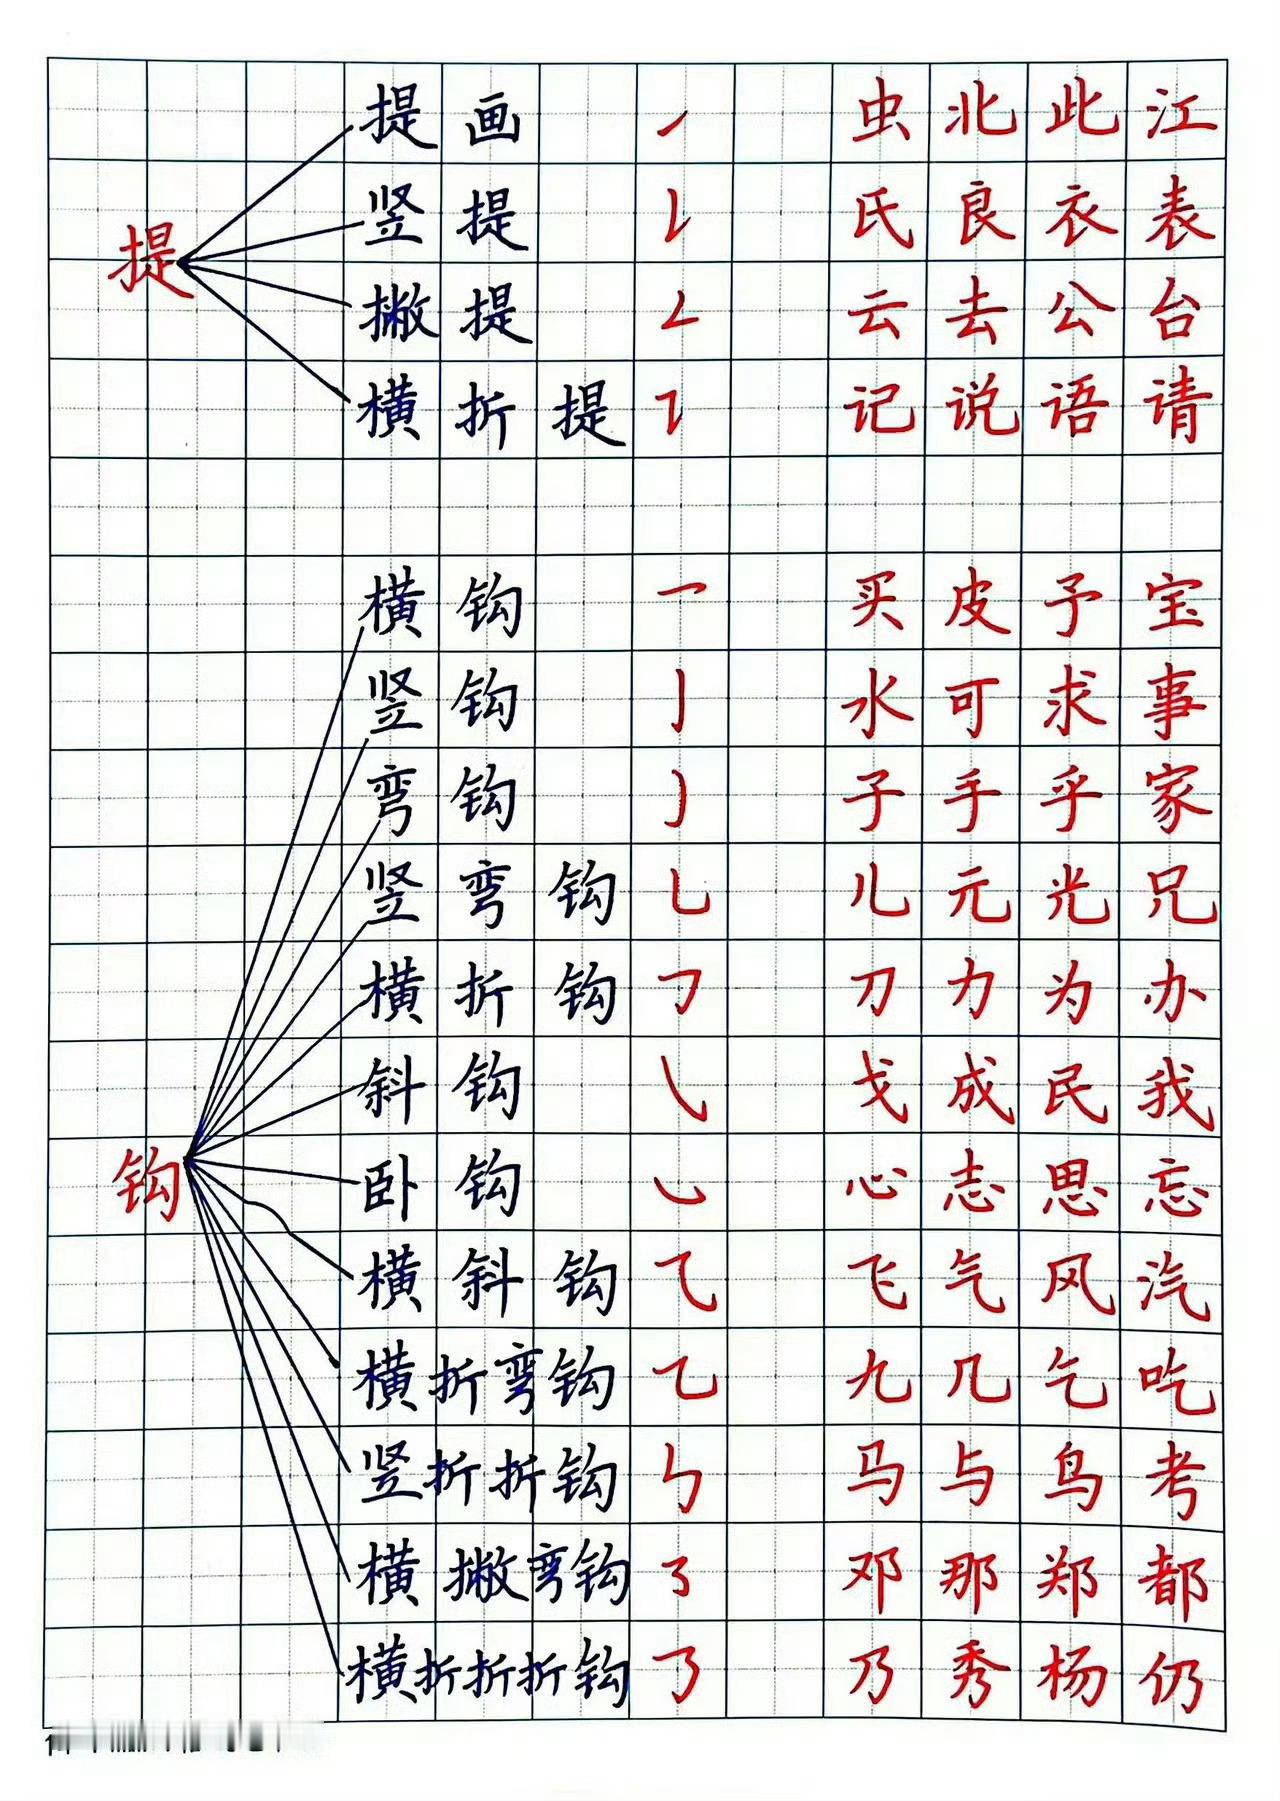 提画 ㇀ 虫北此江
竖提 𠄌 氏良衣表
提
撇提 𠃋 云去公台
横折提 ㇊ 记说语请
横钩 乛 买皮予宝
竖钩 亅 水可求事
弯钩 ㇁ 子手乎家
竖弯钩 乚 儿元光兄
横折钩 𠃌 刀力为办
斜钩 ㇂ 戈成民我
钩
卧钩 ㇃ 心志思忘
横斜钩 ⺄ 飞气风汽
横折弯钩 乙 九几乞吃
竖折折钩 ㇉ 马与鸟考
横撇弯钩 ㇌ 邓那郑都
横折折折钩 ㇡ 乃秀杨仍